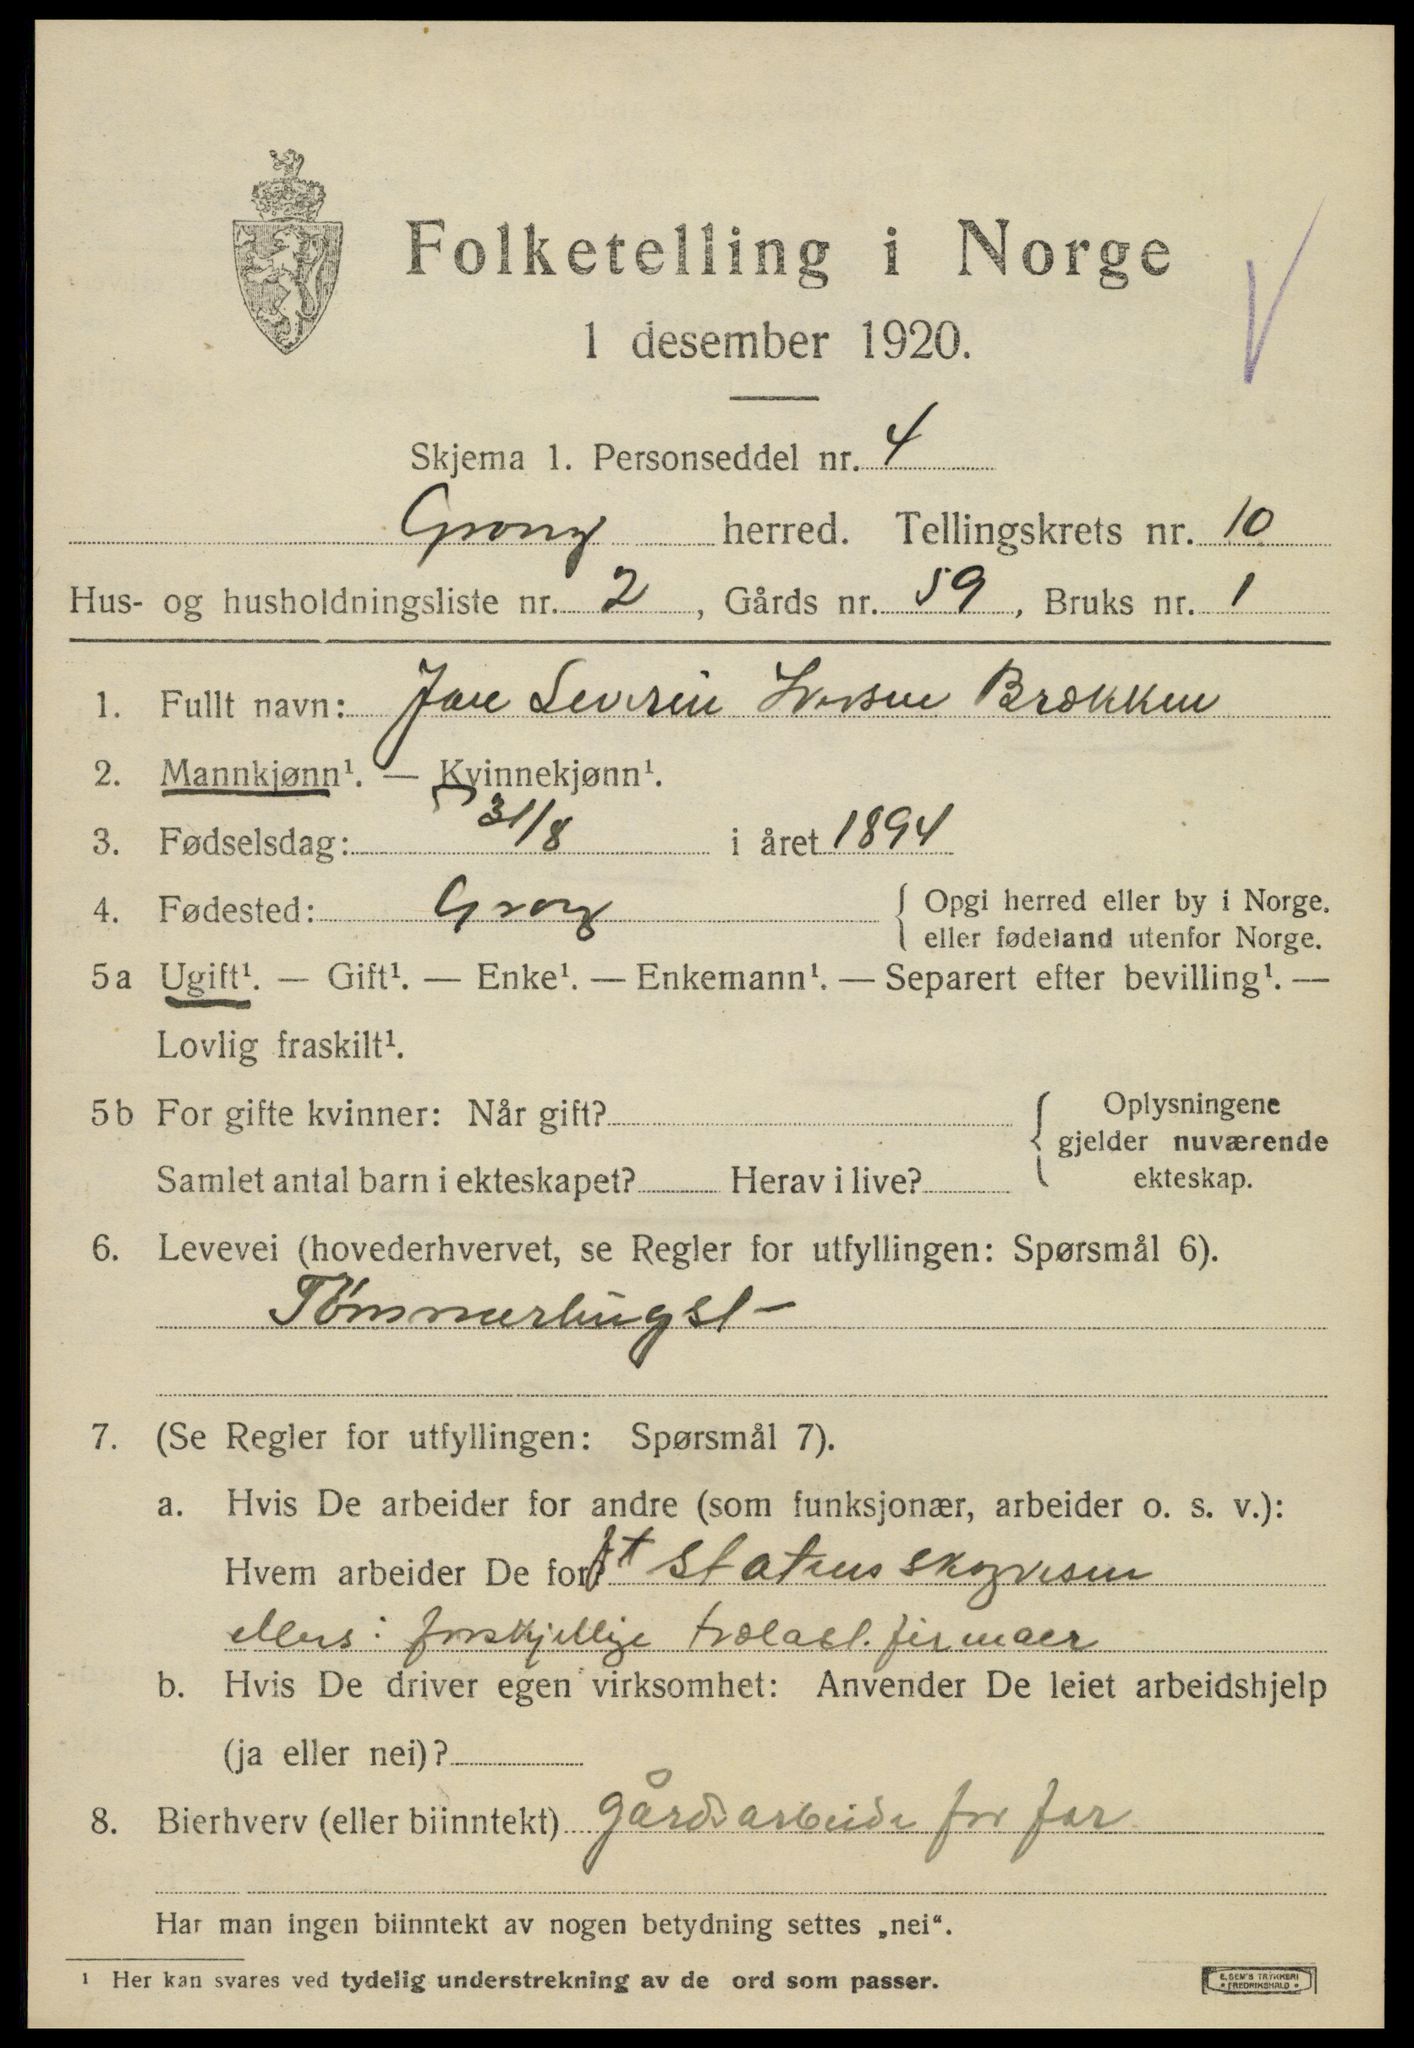 Folketelling i Norge
1 desember 1920.
Skjema 1. Personseddel nr. 4
Grong herred. Tellingskrets nr. 10
Hus- og husholdningsliste nr. 2, Gårds nr. 59, Bruks nr. 1
1. Fullt navn: Severin Brækken
2. Mannkjønn¹. — Kvinnekjønn¹.
3. Fødselsdag: 31/8 i året 1894
4. Fødested: Grong { Opgi herred eller by i Norge.
eller fødeland utenfor Norge.
5a Ugift¹. — Gift¹. — Enke¹. — Enkemann¹. — Separert efter bevilling¹. —
Lovlig fraskilt¹.
5b For gifte kvinner: Når gift? { Oplysningene
gjelder nuværende
Samlet antal barn i ekteskapet? Herav i live? ekteskap.
6. Levevei (hovederhvervet, se Regler for utfyllingen: Spørsmål 6).
Tømmerhugst
7. (Se Regler for utfyllingen: Spørsmål 7).
a. Hvis De arbeider for andre (som funksjonær, arbeider o. s. v.):
Hvem arbeider De for? ft statens skogvesen
ellers i forskjellige trælast. firmaer
b. Hvis De driver egen virksomhet: Anvender De leiet arbeidshjelp
(ja eller nei)?
8. Bierhverv (eller biinntekt) gårdsarbeide for far
Har man ingen biinntekt av nogen betydning settes „nei“.
¹ Her kan svares ved tydelig understrekning av de ord som passer.
E. SEM'S TRYKKERI
• FREDRIKSHALD •